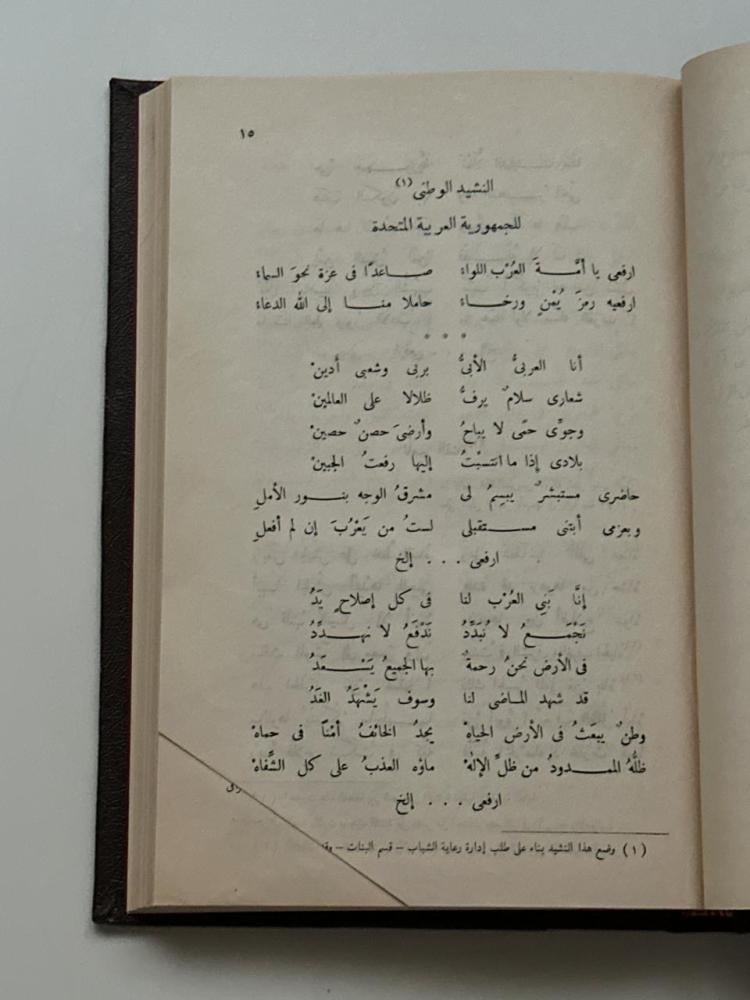 ١٥
النشيد الوطنى (١)
للجمهورية العربية المتحدة
ارفعى يا أمَّـــةَ العُرْب اللواء صـــاعدًا فى عزة نحوَ السماء
ارفعيه رمزَ يُمْنٍ ورخـــاء حاملا منـــا إلى الله الدعاء
* * *
أنا العربىُّ الأبىُّ بربى وشعبى أَدينْ
شعارى سلامٌ يرفُّ ظلالا على العالمينْ
وجوِّى حمًى لا يباحُ وأرضىَ حصنٌ حصينْ
بلادى إذا ما انتسبْتُ إليها رفعتُ الجبينْ
حاضرى مستبشرٌ يبسِمُ لى مشرقُ الوجه بنـــور الأملِ
وبعزمى أبتنى مســـتقبلى لستُ من يَعْرُبَ إن لم أفعلِ
ارفعى . . . إلخ
إنَّا بَنِى العُرْب لنا فى كل إصلاحٍ يَدُ
نَجْمَـــعُ لا نُبَدَّدُ نَدْفَعُ لا نهـــدَّدُ
فى الأرض نحنُ رحمةٌ بها الجميعُ يَسْـــعَدُ
قد شهد المـاضى لنا وسوف يَشْهَدُ الغَدُ
وطنٌ يبعَثُ فى الأرض الحياهْ يجدُ الخائفُ أمْنًا فى حماهْ
ظلُّهُ الممـــدودُ من ظلِّ الإلٰهْ ماؤه العذبُ على كل الشِّفاهْ
ارفعى . . . إلخ
(١) وضع هذا النشيد بناء على طلب إدارة رعاية الشباب – قسم البنات –